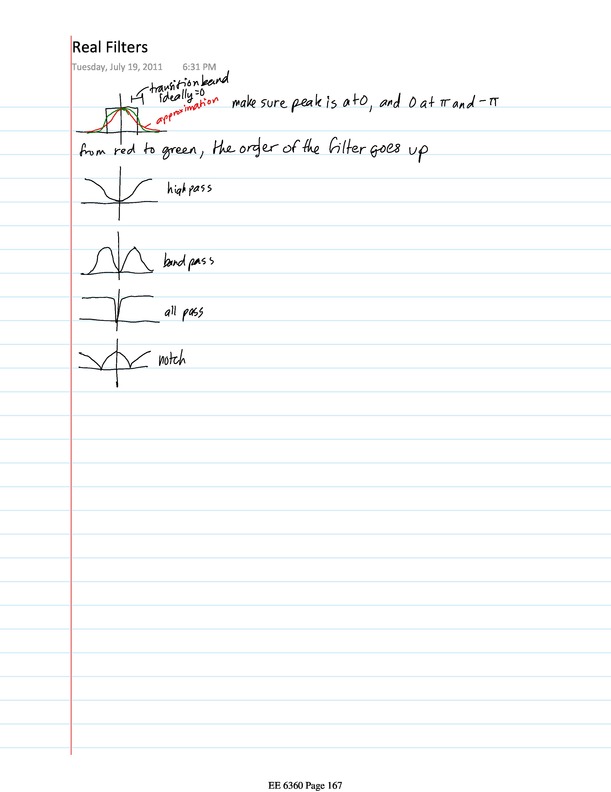 Real Filters
Tuesday, July 19, 2011 6:31 PM
transition band
ideally=0
approximation
make sure peak is at 0, and 0 at π and -π
from red to green, the order of the filter goes up
high pass
band pass
all pass
notch
EE 6360 Page 167